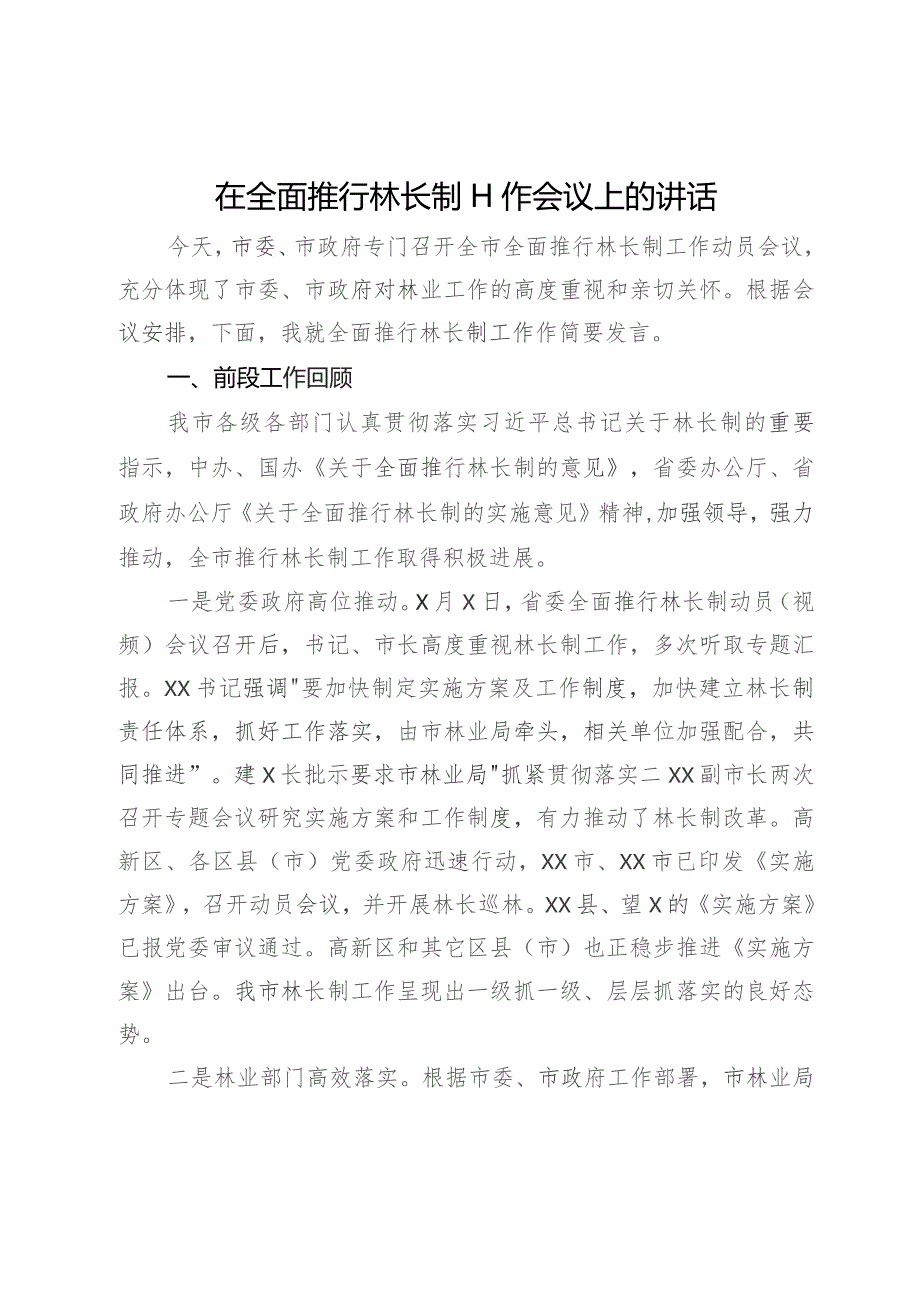 在全面推行林长制 H 作会议上的讲话
今天，市委、市政府专门召开全市全面推行林长制工作动员会议，
充分体现了市委、市政府对林业工作的高度重视和亲切关怀。根据会
议安排，下面，我就全面推行林长制工作作简要发言。
一、前段工作回顾
我市各级各部门认真贯彻落实习近平总书记关于林长制的重要
指示，中办、国办《关于全面推行林长制的意见》，省委办公厅、省
政府办公厅《关于全面推行林长制的实施意见》精神,加强领导，强力
推动，全市推行林长制工作取得积极进展。
一是党委政府高位推动。X 月 X 日，省委全面推行林长制动员（视
频）会议召开后，书记、市长高度重视林长制工作，多次听取专题汇
报。XX 书记强调"要加快制定实施方案及工作制度，加快建立林长制
责任体系，抓好工作落实，由市林业局牵头，相关单位加强配合，共
同推进”。建 X 长批示要求市林业局"抓紧贯彻落实二 XX 副市长两次
召开专题会议研究实施方案和工作制度，有力推动了林长制改革。高
新区、各区县（市）党委政府迅速行动，XX 市、XX 市已印发《实施
方案》，召开动员会议，并开展林长巡林。XX 县、望 X 的《实施方案》
已报党委审议通过。高新区和其它区县（市）也正稳步推进《实施方
案》出台。我市林长制工作呈现出一级抓一级、层层抓落实的良好态
势。
二是林业部门高效落实。根据市委、市政府工作部署，市林业局